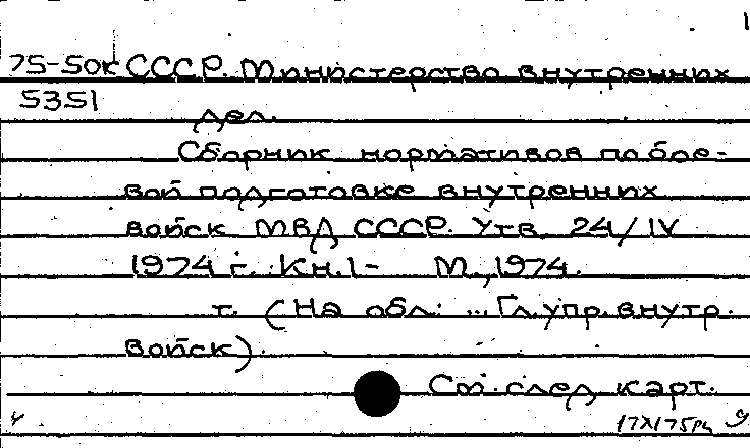 1
75-50к СССР. Министерство внутренних
5351
дел.
Сборник нормативов по бое-
вой подготовке внутренних
войск МВД СССР. Утв. 24/IV
1974 г. Кн. 1- М., 1974.
т. (На обл: ... Гл. упр. внутр.
войск).
См. след карт.